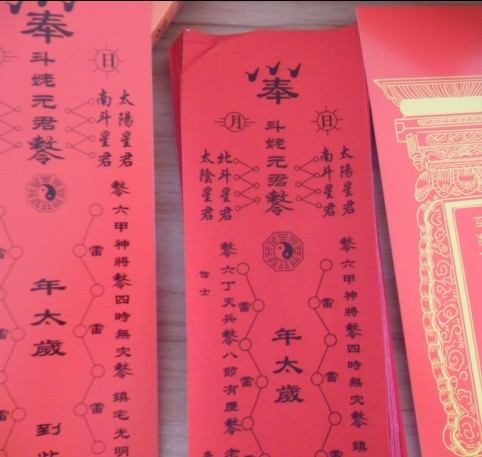 奉
斗姥元君
日
太陽星君
南斗星君
六甲神將
四時無災
鎮宅光明
雷
雷
雷
雷
雷
年太歲
到
奉
斗姥元君
日
月
太陽星君
南斗星君
北斗星君
太陰星君
六甲神將
四時無災
鎮
雷
雷
雷
雷
雷
雷
年太歲
信士
六丁天兵
八節有慶